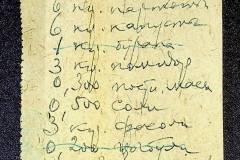 6 кг. картопл
6 кг. капусти
1 кг. буряка
3 кг. помідор
0,300 пост. масл
0,500 соли
3 кг. фасоли
0 200